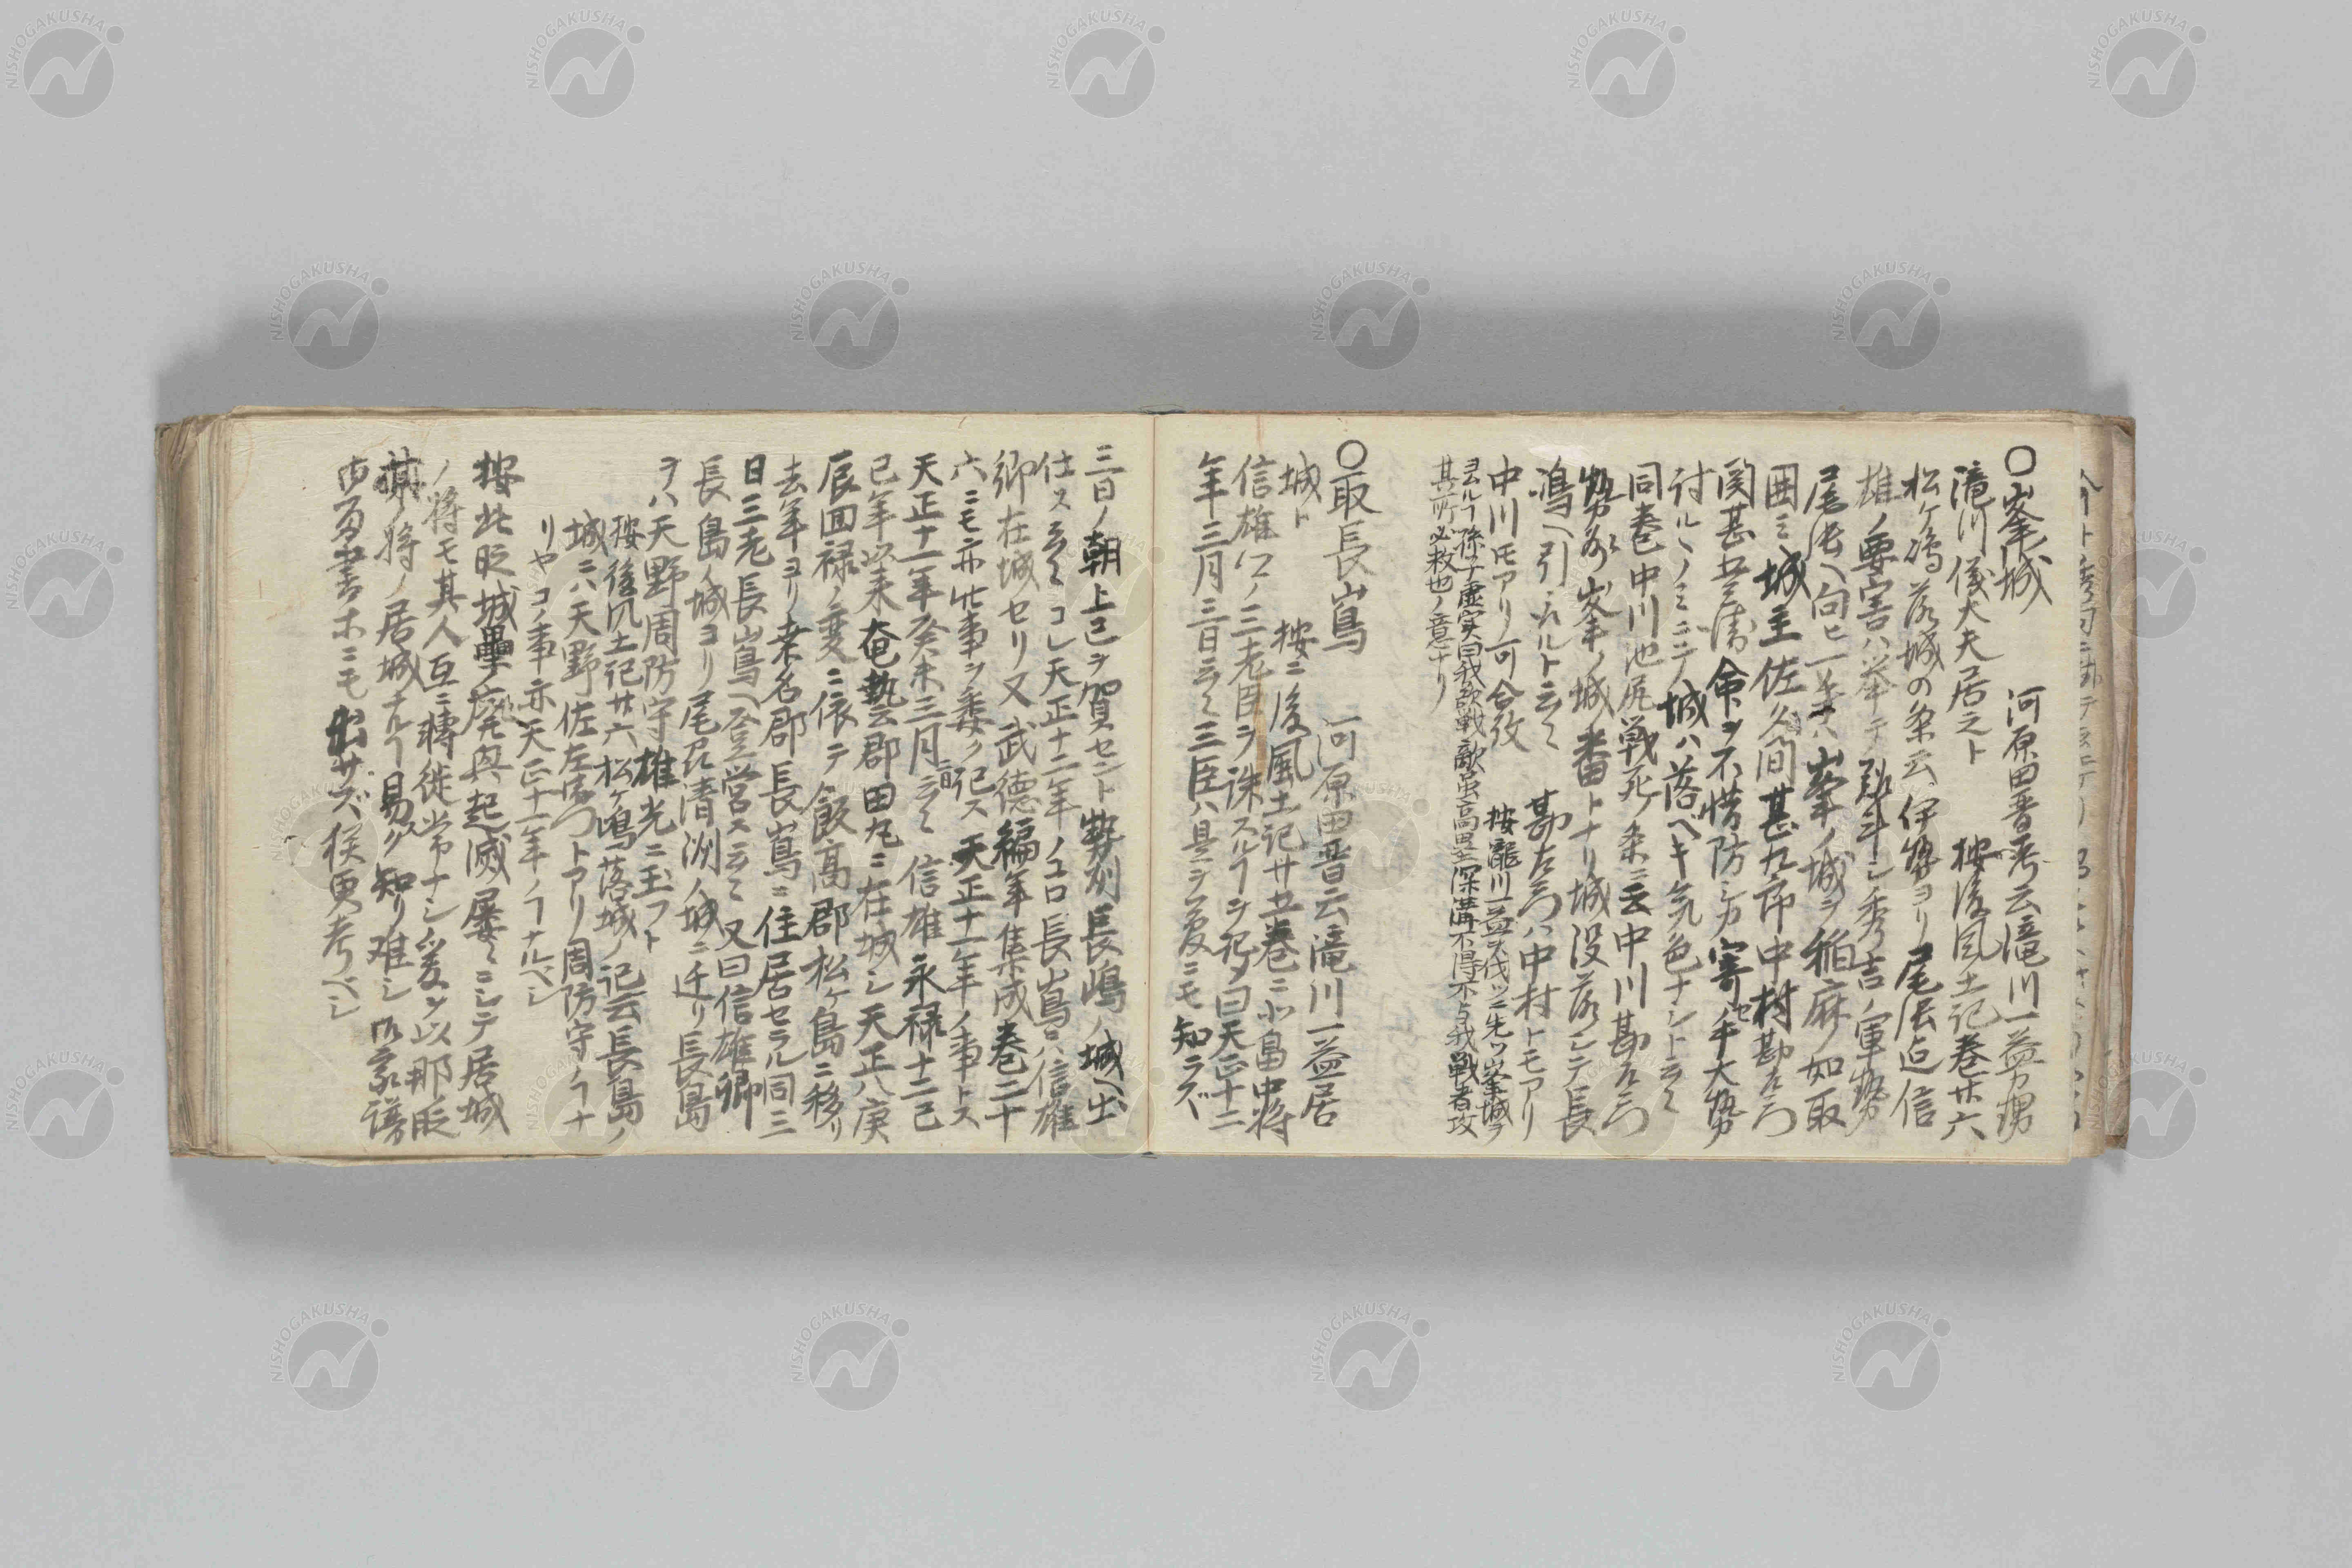 ○峯城 河原田晋考云滝川一益カ甥
滝川儀大夫居之ト 按後風土記巻廿六
松ケ嶋落城の条云伊勢ヨリ尾張迠信
雄ノ要害ハ挙テ シ秀吉ノ軍勢
尾張ヘ向ヒ一 ハ峯ノ城ヲ稲麻ノ如取
囲ミ城主佐久間甚九郎中村勘左エ門
関甚五兵衛命ヲ不惜防シカ寄セ手大勢
討ルヽノミニテ城ハ落ベキ気色ナシト云々
同巻中川池尻戦死ノ条ニ云中川勘左エ門
勢州峯ノ城番トナリ城没落シテ長
嶋ヘ引 ルト云々 勘左エ門ハ中村トモアリ
中川トモアリ可合攷 按瀧川一益ヲ伐ツニ先ツ峯城ヲ
ヨムルヿ孫子虚実曰我欲戦敵虽高塁深溝不得不与我戦者攻
其所必救也ノ意ナリ
○取長嶌 河原田晋云滝川一益居
城ト 按ニ後風土記廿五巻ニ北畠中将
信雄公ノ三老臣ヲ誅スルヿヲ記メ曰天正十二
年三月三日云々三臣ハ是ヲ夏ニモ知ラズ
三日ノ朝上巳ヲ賀セント勢刕長嶋ノ城ヘ出
仕ス云々コレ天正十二年ノコロ長嶌ニハ信雄
卿在城セリ又武徳編年集成巻二十
六ニモ亦此事ヲ委ク記ス天正十一年ノ事トス
天正十一年癸未三月三日云々信雄永禄十二己
巳年以来奄芸郡田丸ニ在城シ天正八庚
辰回禄ノ変ニ依テ飯高郡松ケ島ニ移リ
去年ヨリ桒名郡長嶌ニ住居セラル同三
日三老長嶌ヘ登営ス云々又曰信雄卿
長島ノ城ヨリ尾刕清洲ノ城ニ迁リ長島
ヲハ天野周防守雄光ニ玉フト
按後風土記廿六松ケ嶋落城ノ記云長島ノ
城ニハ天野佐左エ門トアリ周防守ノヿナ
リヤコノ事亦天正十一年ノヿナルベシ
按北畄城壘ノ廃興起滅屡々ニシテ居城
ノ将モ其人互ニ轉徙常ナシ爰ヲ以那辺
某ノ将ノ居城ナルヿ易ク知リ難シ 家譜
 書ホニモ出サズ猶更考ベシ